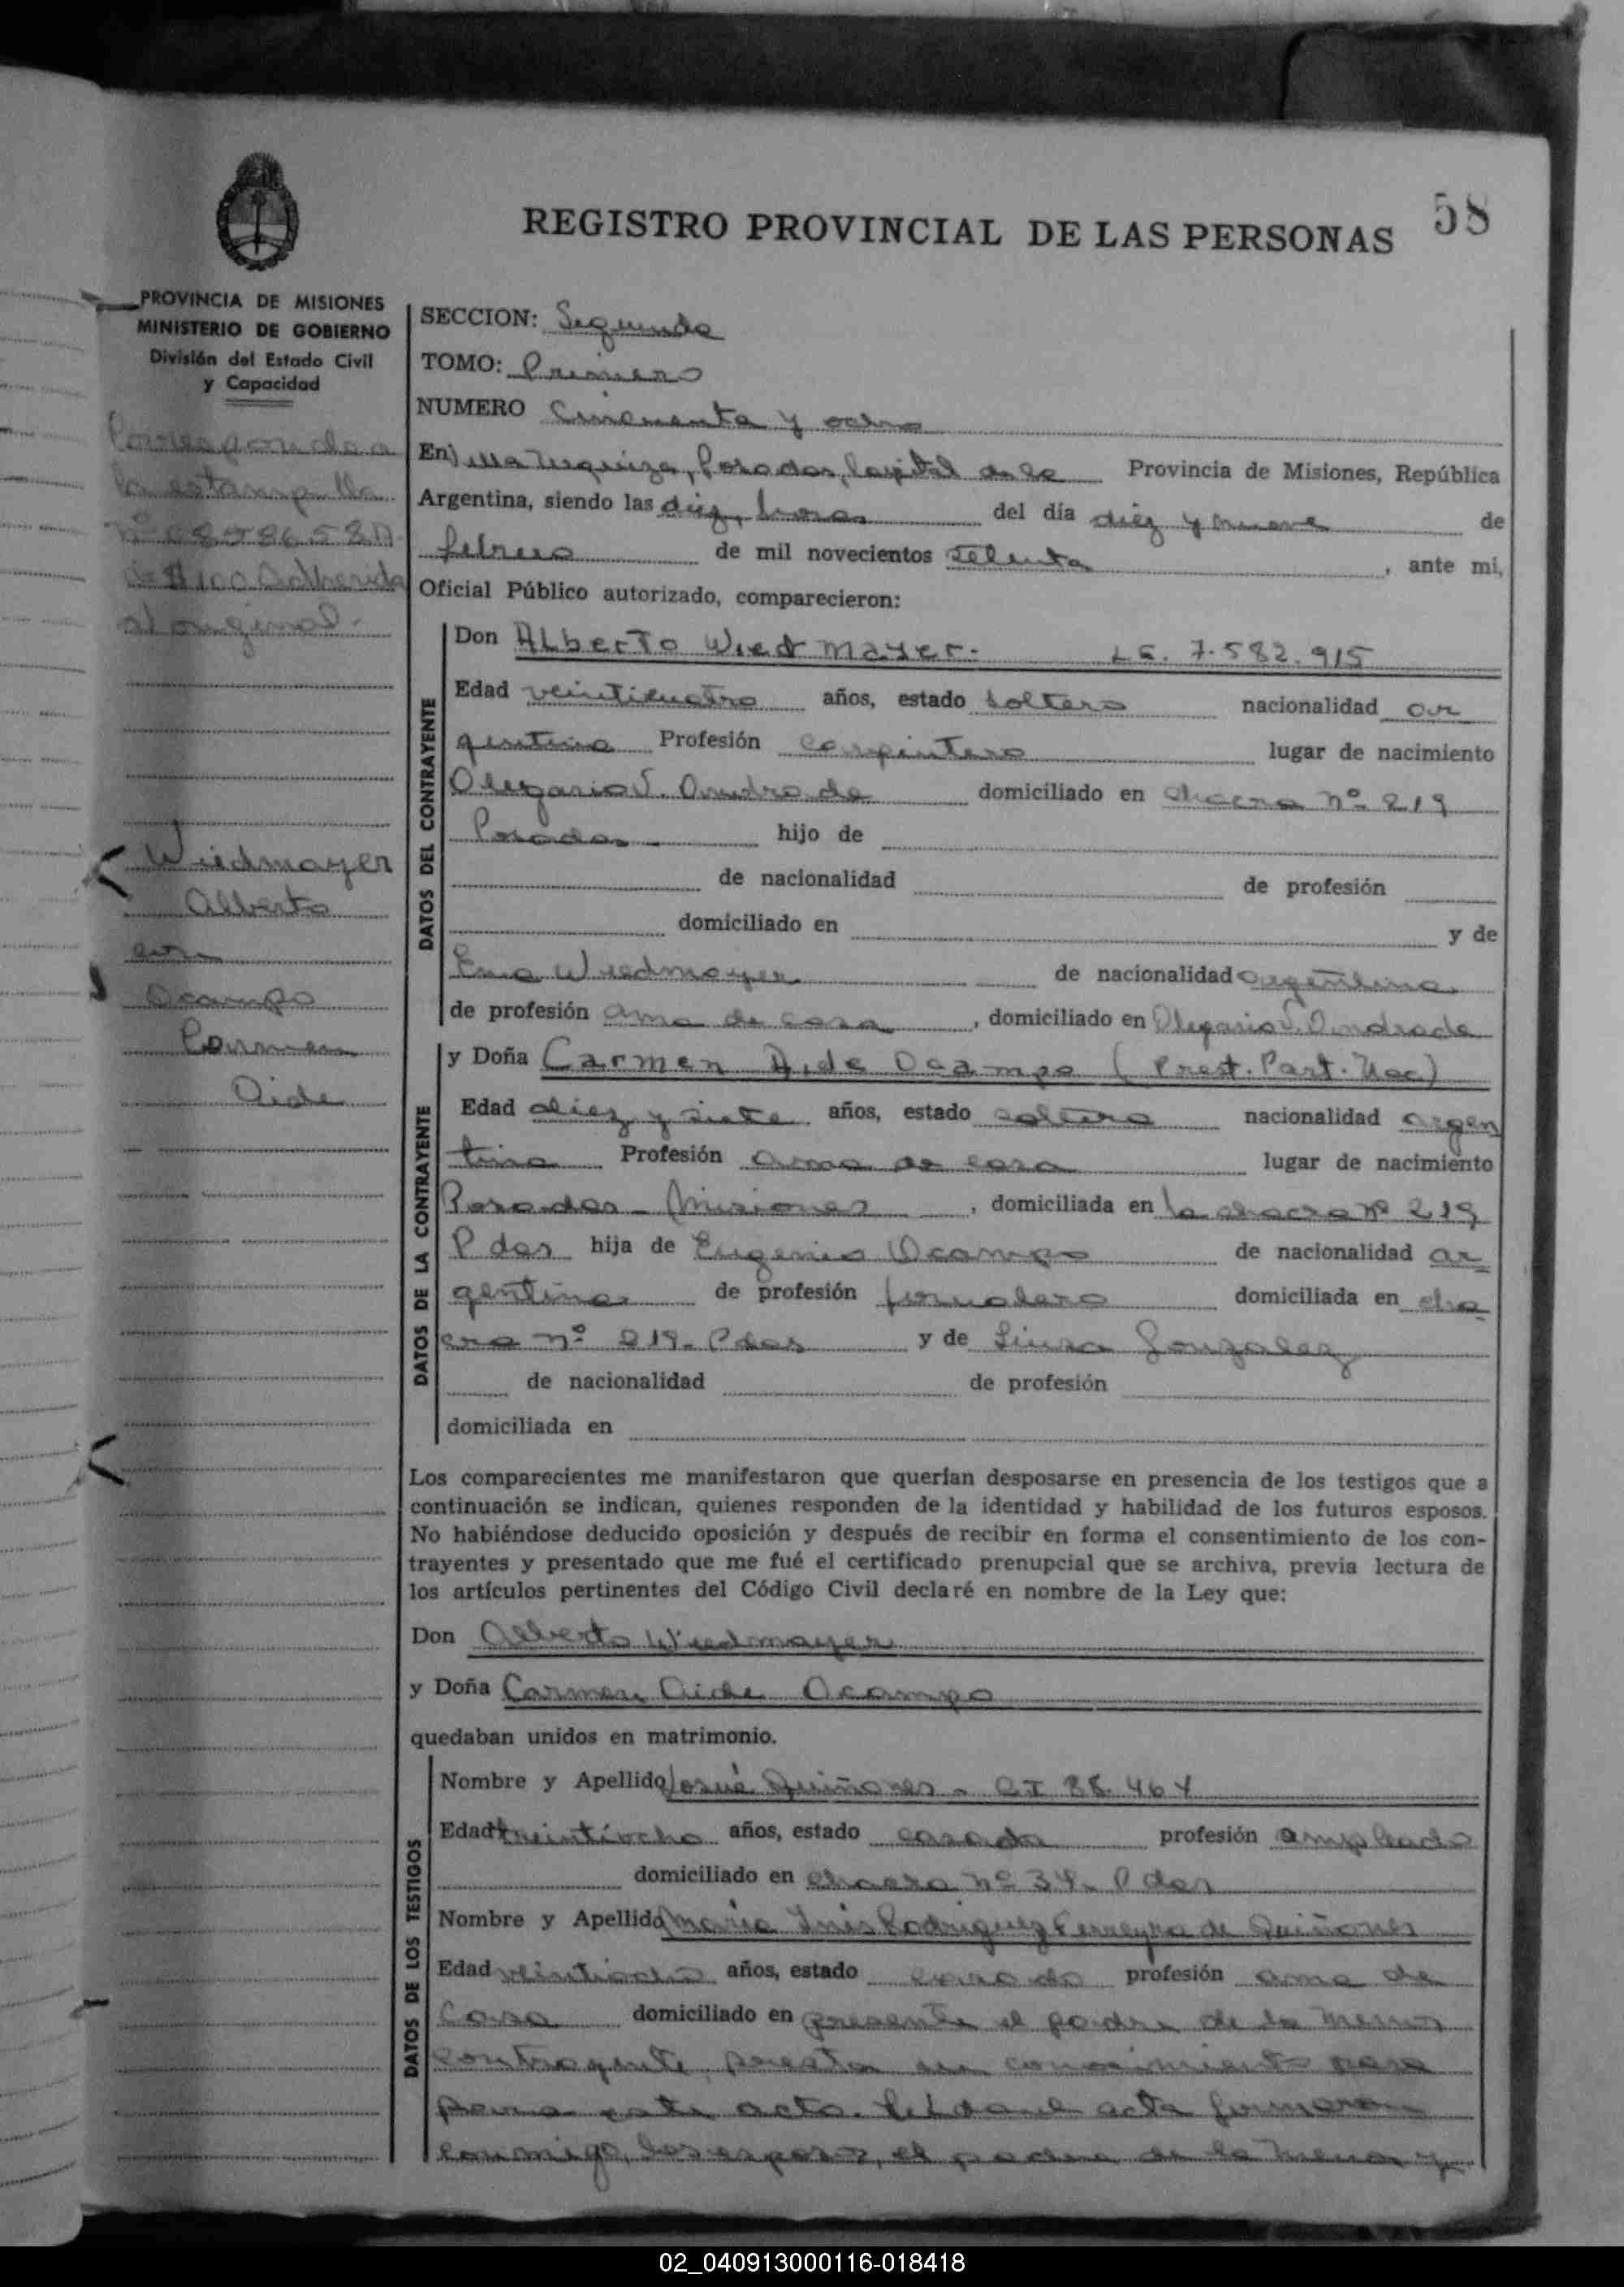 58
REGISTRO PROVINCIAL DE LAS PERSONAS
PROVINCIA DE MISIONES
MINISTERIO DE GOBIERNO
División del Estado Civil
y Capacidad
Corresponde a
la estampilla
de $100 Adherida
al original.
Wiedmayer
Alberto
con
Ocampo
Carmen
Aide
SECCION: Segunda
TOMO: Primero
NUMERO Cincuenta y ocho
En Villa Urquiza, Posadas, Capital de la Provincia de Misiones, República
Argentina, siendo las diez horas del día diez y nueve de
febrero de mil novecientos setenta, ante mi,
Oficial Público autorizado, comparecieron:
DATOS DEL CONTRAYENTE
Don Alberto Wiedmayer. L.E. 7.582.915
Edad veinticuatro años, estado soltero nacionalidad ar
gentina Profesión carpintero lugar de nacimiento
Olegario V. Andrade domiciliado en chacra nº 219
Posadas hijo de
de nacionalidad de profesión
domiciliado en y de
Ema Wiedmayer de nacionalidad argentina
de profesión ama de casa, domiciliado en Olegario V. Andrade
DATOS DE LA CONTRAYENTE
y Doña Carmen Aide Ocampo (Prest. Part. Nac)
Edad diez y siete años, estado soltera nacionalidad argen
tina Profesión ama de casa lugar de nacimiento
Posadas - Misiones, domiciliada en la chacra nº 219
Pdas hija de Eugenio Ocampo de nacionalidad ar
gentina de profesión jornalero domiciliada en cha
cra nº 219. Pdas y de Gonzalez
de nacionalidad de profesión
domiciliada en
Los comparecientes me manifestaron que querían desposarse en presencia de los testigos que a
continuación se indican, quienes responden de la identidad y habilidad de los futuros esposos.
No habiéndose deducido oposición y después de recibir en forma el consentimiento de los con-
trayentes y presentado que me fué el certificado prenupcial que se archiva, previa lectura de
los artículos pertinentes del Código Civil declaré en nombre de la Ley que:
Don Alberto Wiedmayer
y Doña Carmen Aide Ocampo
quedaban unidos en matrimonio.
DATOS DE LOS TESTIGOS
Nombre y Apellido Josué Quiñones - CI 38.464
Edad treintiocho años, estado casado profesión empleado
domiciliado en chacra nº 34. Pdas
Nombre y Apellido Maria Inés Rodriguez Ferreyra de Quiñones
Edad veintiocho años, estado casado profesión ama de
casa domiciliado en presente el padre de la menor
contrayente, presta su conocimiento para
para este acto. Leida el acta firmaron
conmigo, los esposos, el padre de la menor y
02_040913000116-018418